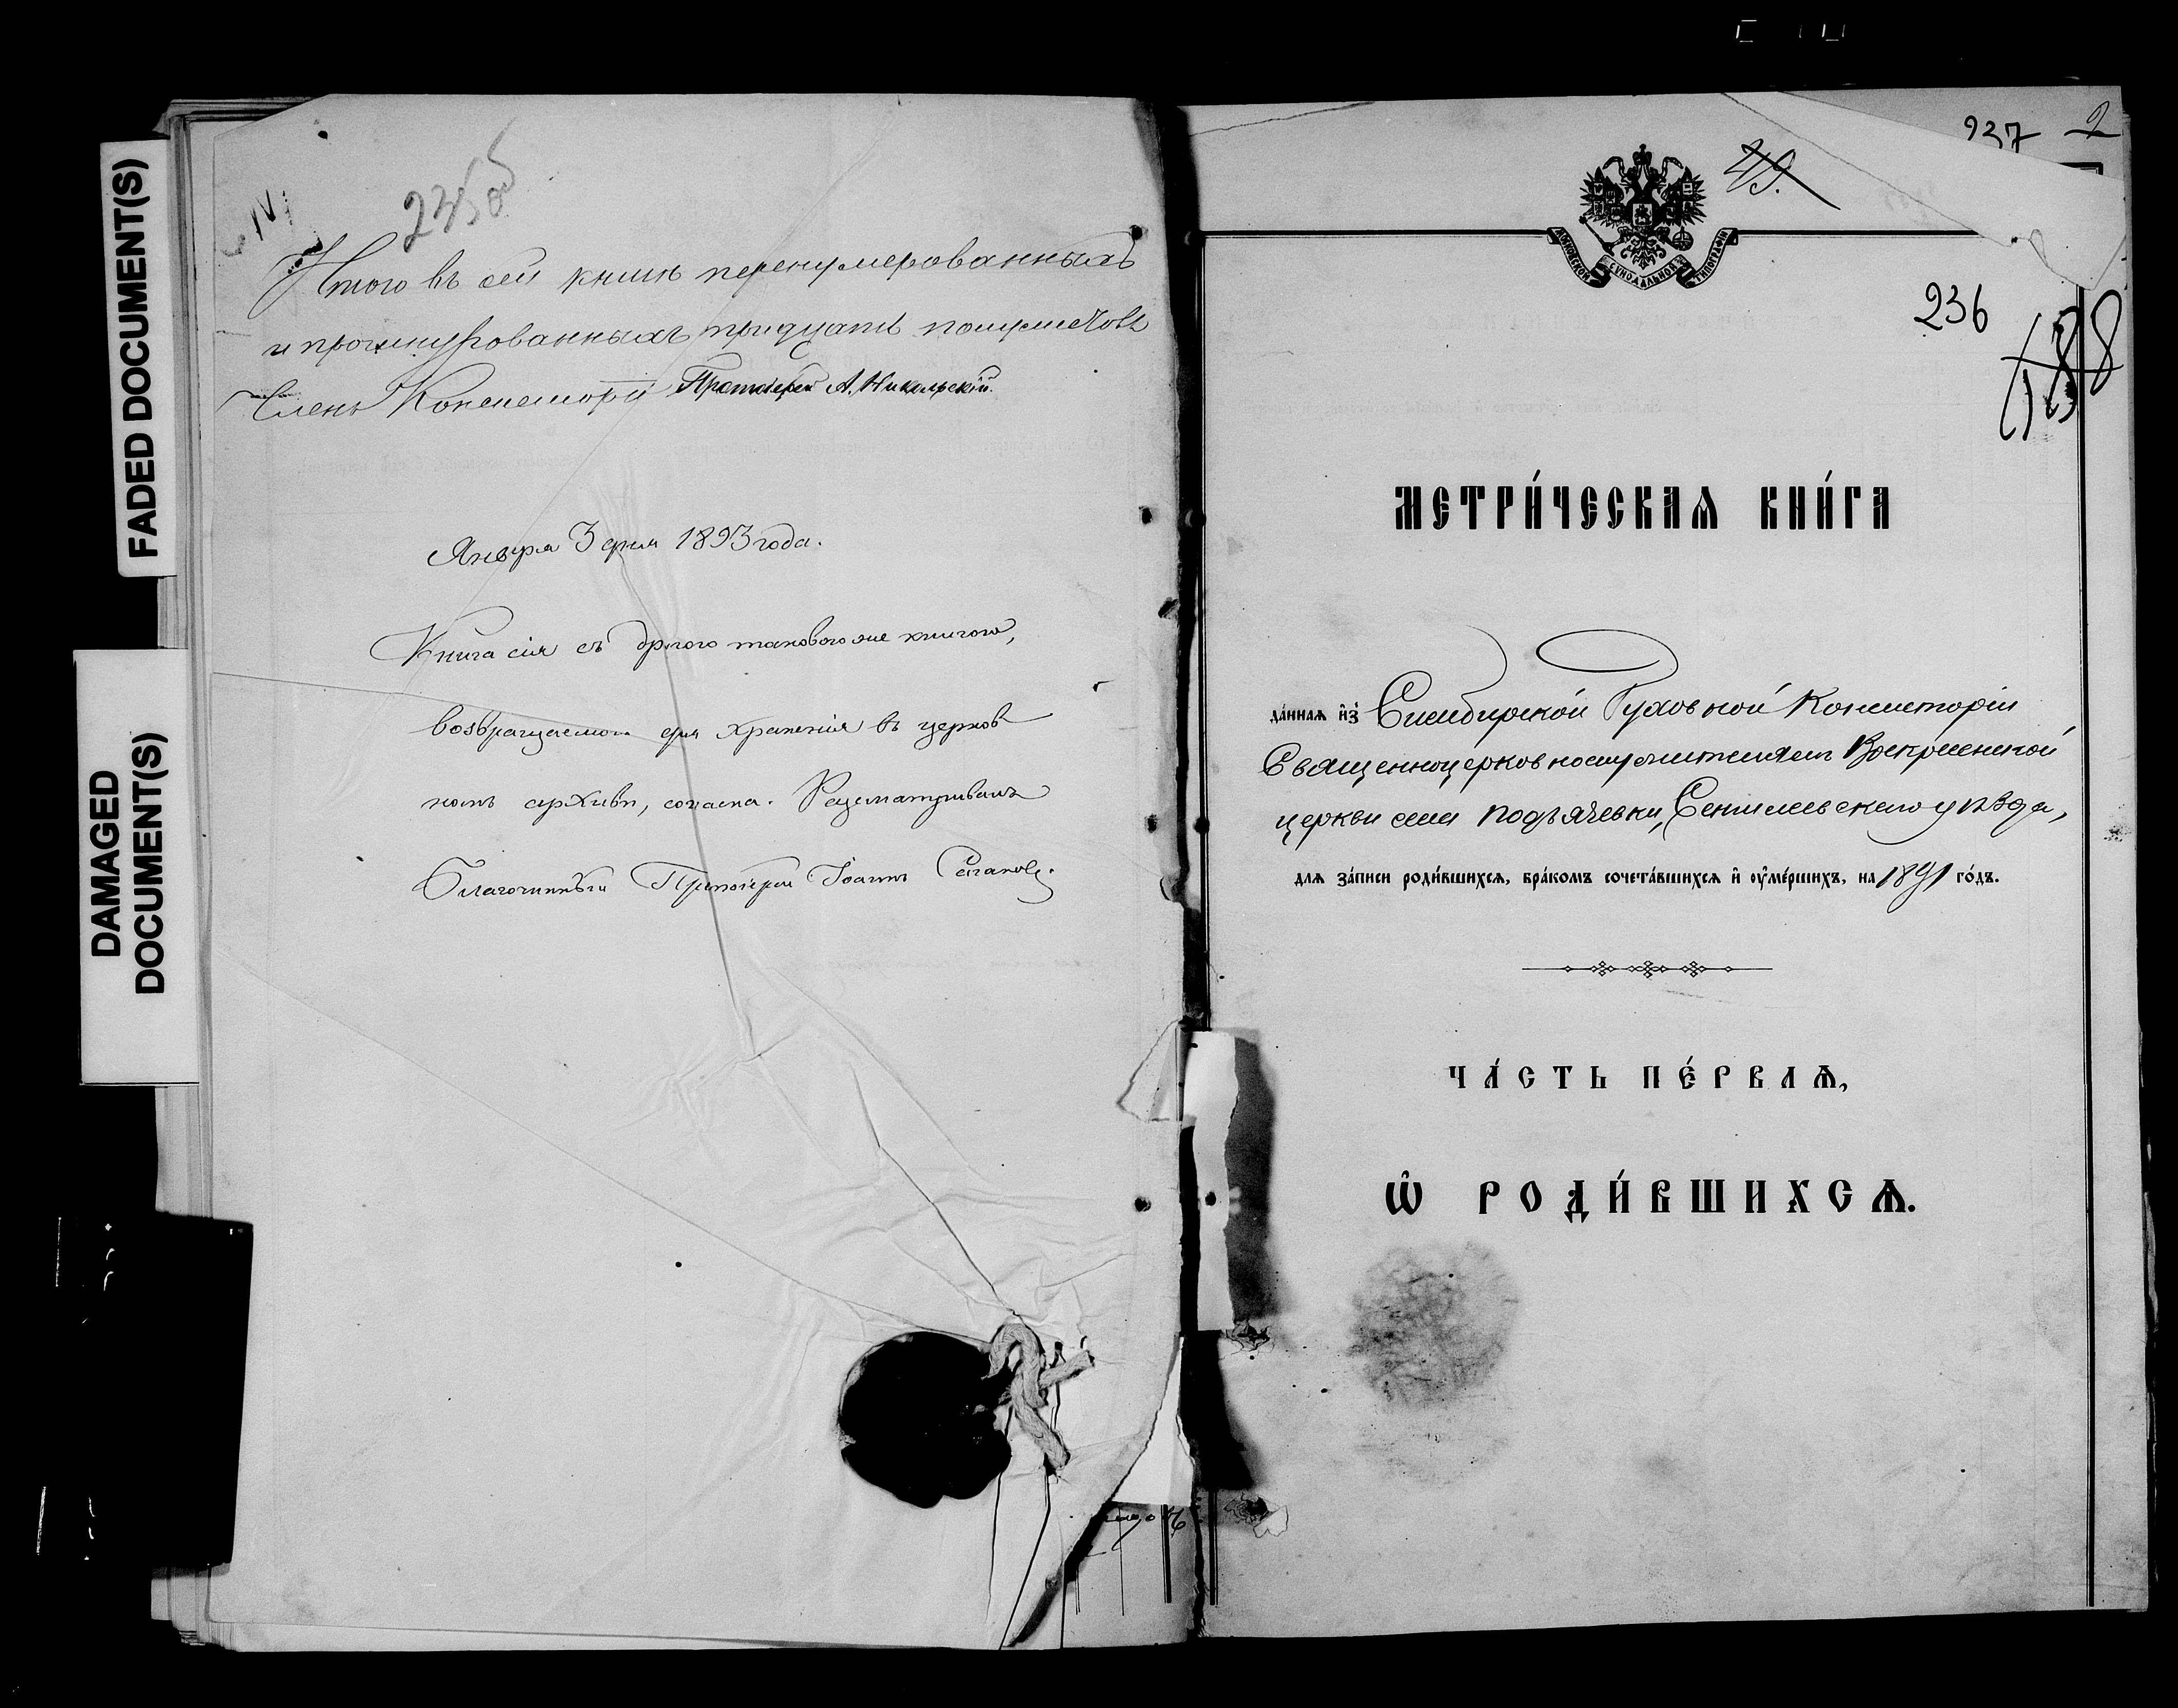 FADED DOCUMENT(S)
DAMAGED
DOCUMENT(S)
235 об
Итого въ сей книгѣ перенумерованныхъ
и прошнурованныхъ тридцать полулистовъ
Членъ Консисторіи Протоіерей А. Никольскій.
Января 3 дня 1893 года.
Книга сія съ другою таковою же книгою,
возвращаемою для храненія въ церков
номъ архивѣ, согласна. Разсматривалъ
Благочинный Протоіерей Іоаннъ
237 2
49.
МОСКОВСКОЙ СѴНОДАЛЬНОЙ ТИПОГРАФІИ
236
188
МЕТРИ́ЧЕСКАѦ КНИ́ГА
да́ннаѧ и҆з̾ Симбирской Духовной Консисторіи
Священноцерковнослужителямъ Воскресенской
церкви села Подъячевки, Сенгилеевскаго уѣзда,
длѧ за́писи роди́вшихсѧ, бра́комъ сочета́вшихсѧ и҆ ᲂу҆ме́ршихъ, на 1891 го́дъ.
ЧА́СТЬ ПЕ́РВАѦ,
Ѡ҆ РОДИ́ВШИХСѦ.